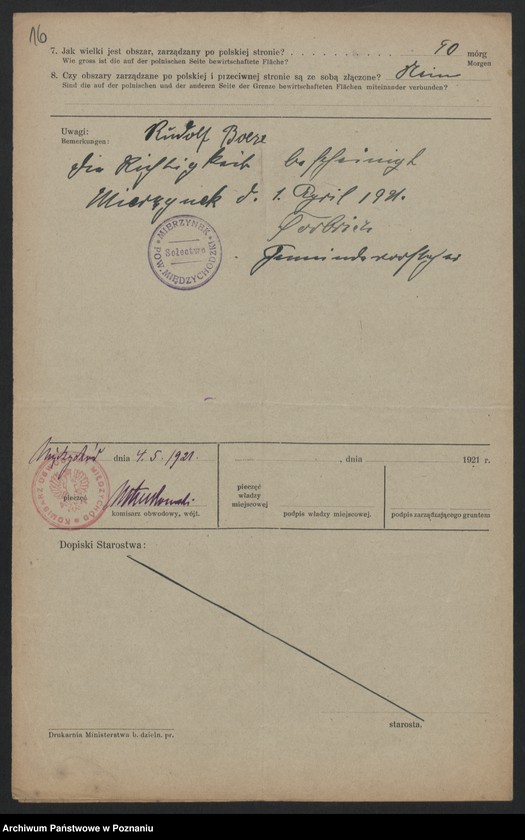 16
7. Jak wielki jest obszar, zarządzany po polskiej stronie? . . . . . . . . . . . . 90 mórg
Wie gross ist die auf der polnischen Seite bewirtschaftete Fläche? Morgen
8. Czy obszary zarządzane po polskiej i przeciwnej stronie są ze sobą złączone? Nein
Sind die auf der polnischen und der anderen Seite der Grenze bewirtschafteten Flächen miteinander verbunden?
Uwagi: Rudolf
Bemerkungen:
die Richtigkeit bescheinigt
Mierzynek d. 1. April 1921.
Gemeindevorsteher
* MIERZYNEK * POW. MIĘDZYCHODZKI
Sołectwo
Międzychód dnia 4. 5. 1921. , dnia 1921 r.
MIĘDZYCHÓD
pieczęć
komisarz obwodowy, wójt.
pieczęć
władzy
miejscowej
podpis władzy miejscowej.
podpis zarządzającego gruntem
Dopiski Starostwa:
starosta.
Drukarnia Ministerstwa b. dzieln. pr.
Archiwum Państwowe w Poznaniu